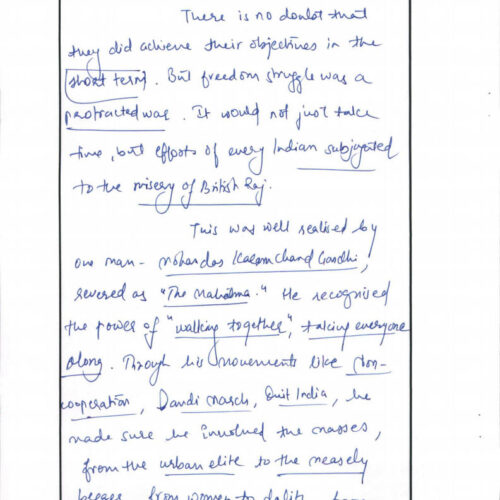 There is no doubt that
they did achieve their objectives in the
short term. But freedom struggle was a
protracted war. It would not just take
time, but efforts of every Indian subjugated
to the misery of British Raj.
This was well realised by
one man - Mohandas Karamchand Gandhi,
revered as "The Mahatma." He recognised
the power of "walking together", taking everyone
along. Through his movements like Non-
cooperation, Dandi march, Quit India, he
made sure he involved the masses,
from the urban elite to the measely
from women to dalits